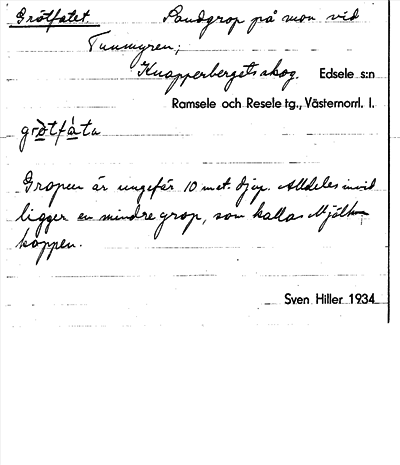 Grötfatet. Sandgrop på mon vid
Tunmyren;
Knapperbergets skog. Edsele s:n
Ramsele och Resele tg., Västernorrl. l.
grö̀tfá̱ta
Gropen är ungefär 10 met. djup. Alldeles invid
ligger en mindre grop, som kallas Mjölk-
koppen.
Sven Hiller 1934